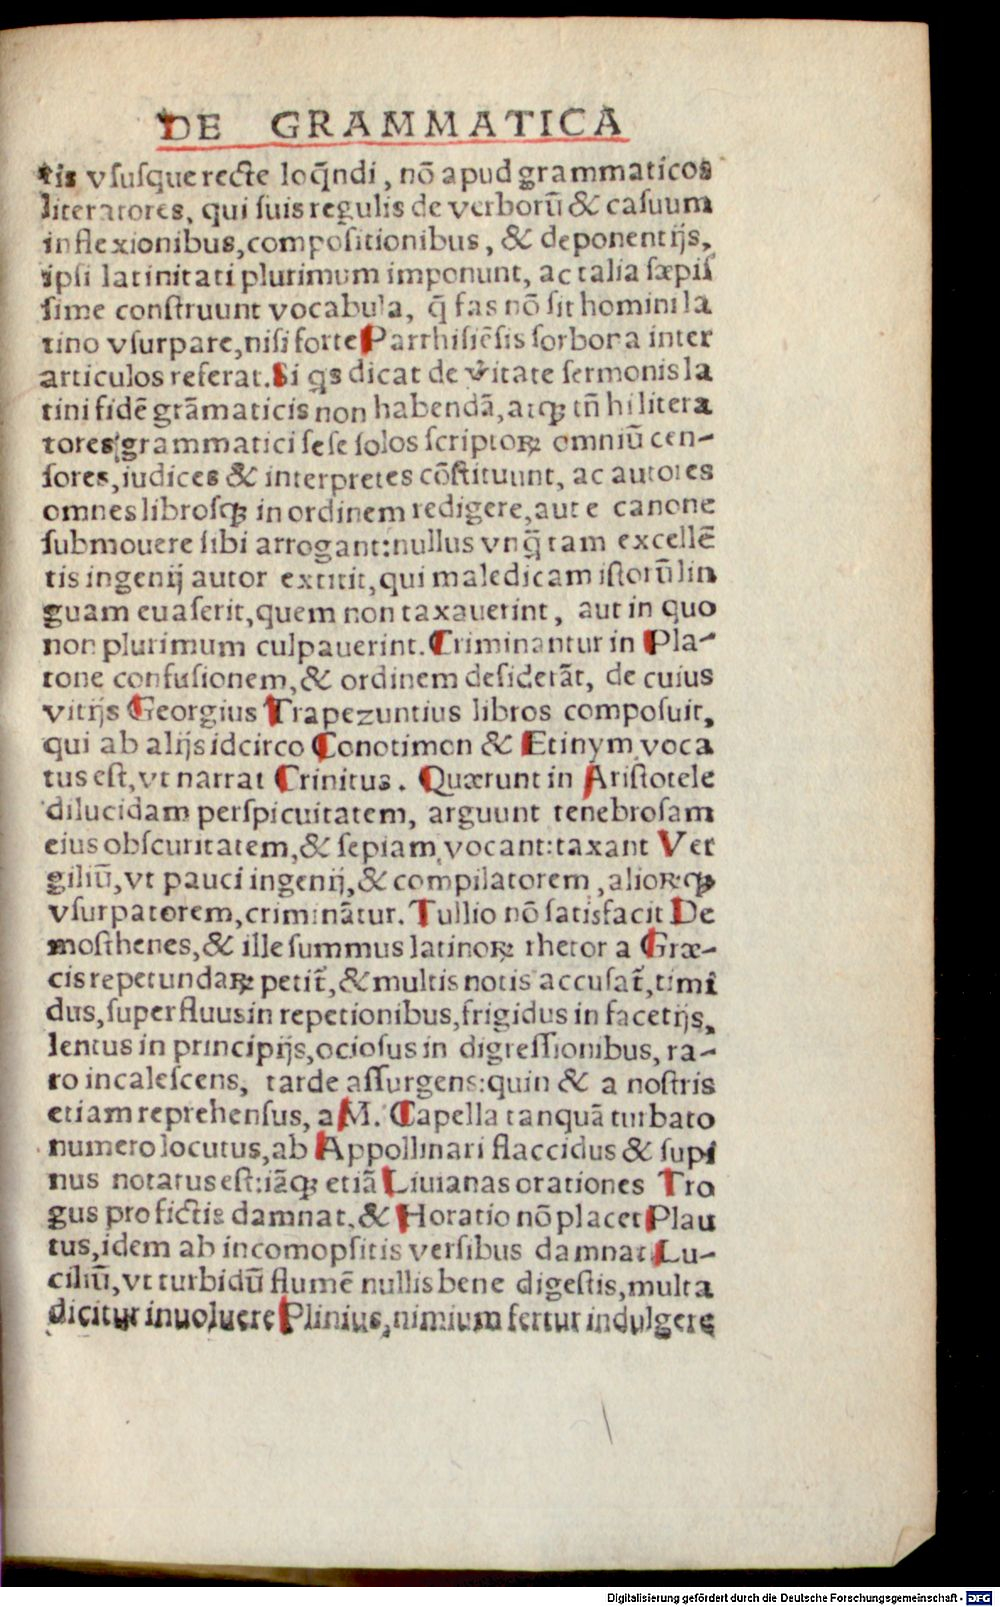 DE GRAMMATICA
tis vſuſque recte loq̄ndi, nō apud grammaticos
literatores, qui ſuis regulis de verborū & caſuum
inflexionibus, compoſitionibus, & deponentijs,
ipſi latinitati plurimum imponunt, ac talia ſæpiſ
ſime conſtruunt vocabula, q̄ fas nō ſit homini la
tino vſurpare, niſi forte Parrhiſiēſis ſorbona inter
articulos referat. Si q̄s dicat de v̄itate ſermonis la
tini fidē grāmaticis non habendā, atqꝫ tn̄ hi litera
tores grammatici ſeſe ſolos ſcriptoꝝ omniū cen-
ſores, iudices & interpretes cōſtituunt, ac autores
omnes libroſqꝫ in ordinem redigere, aut e canone
ſubmouere ſibi arrogant: nullus vnq̄ tam excellē
tis ingenij autor extitit, qui maledicam iſtorū lin
guam euaſerit, quem non taxauerint, aut in quo
non plurimum culpauerint. Criminantur in Pla-
tone confuſionem, & ordinem deſiderāt, de cuius
vitijs Georgius Trapezuntius libros compoſuit,
qui ab alijs idcirco Conotimon & Etinym voca
tus eſt, vt narrat Crinitus. Quærunt in Ariſtotele
dilucidam perſpicuitatem, arguunt tenebroſam
eius obſcuritatem, & ſepiam vocant: taxant Ver
giliū, vt pauci ingenij, & compilatorem, alioꝝqꝫ
vſurpatorem, criminātur. Tullio nō ſatisfacit De
moſthenes, & ille ſummus latinoꝝ rhetor a Græ-
cis repetundaꝝ petit̄, & multis notis accuſat̄, timi
dus, ſuperfluus in repetionibus, frigidus in facetijs,
lentus in principijs, ocioſus in digreſſionibus, ra-
ro incaleſcens, tarde aſſurgens: quin & a noſtris
etiam reprehenſus, a M. Capella tanquā turbato
numero locutus, ab Appollinari flaccidus & ſupi
nus notatus eſt: iāqꝫ etiā Liuianas orationes Tro
gus pro fictis damnat, & Horatio nō placet Plau
tus, idem ab incomopſitis verſibus damnat Lu-
ciliū, vt turbidū flumē nullis bene digeſtis, multa
dicitur inuoluere Plinius, nimium fertur indulgere
Digitalisierung gefördert durch die Deutsche Forschungsgemeinschaft - DFG